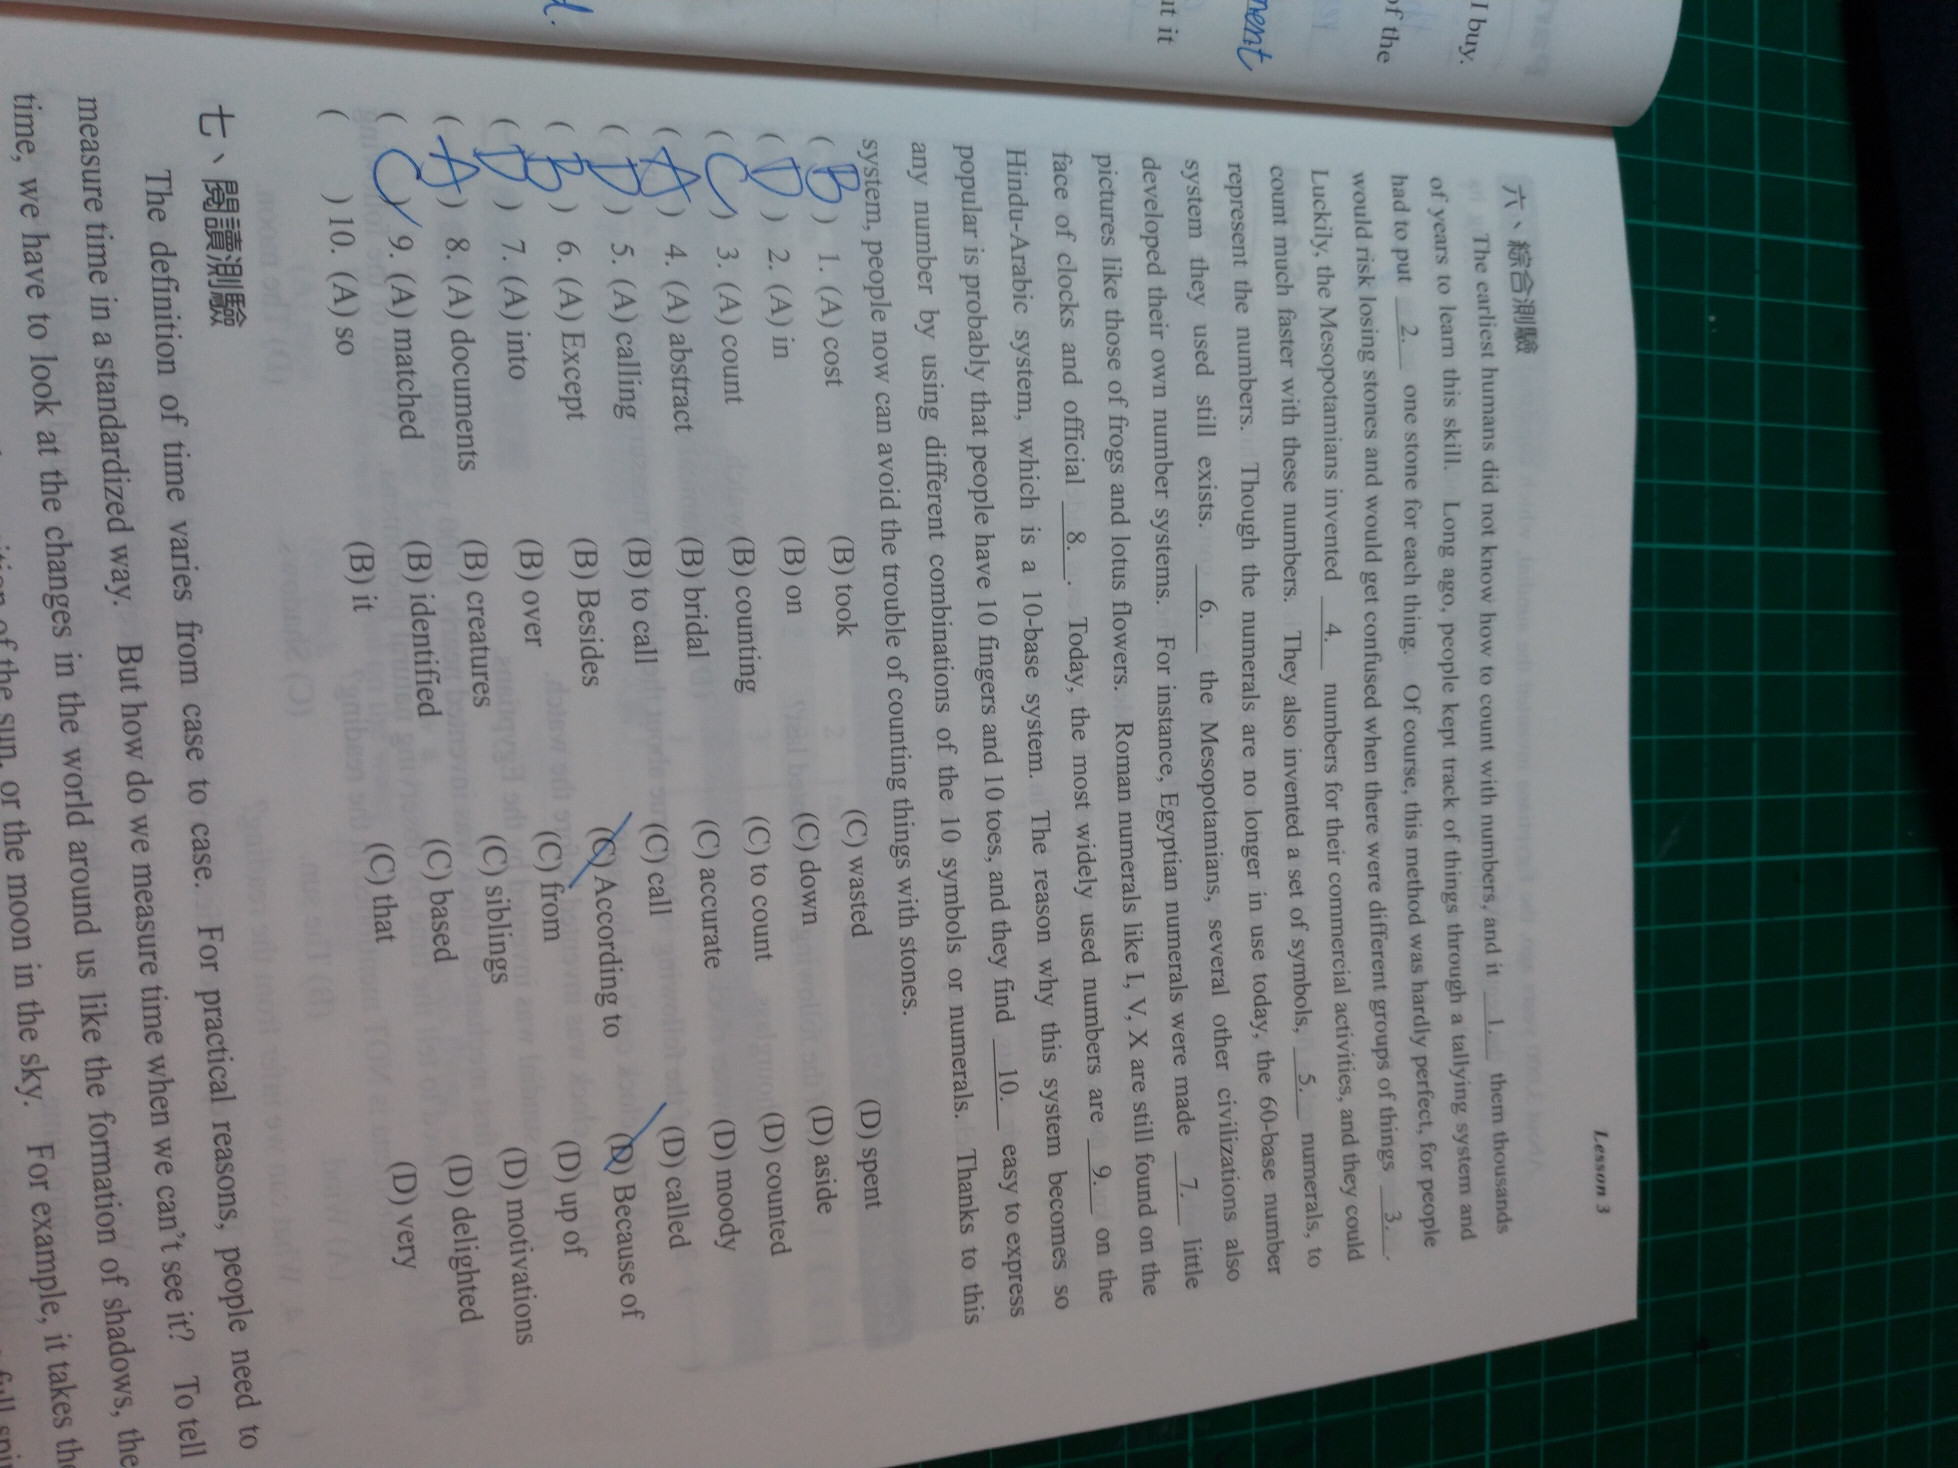 I buy.
of the
ment
ut it
d.
Lesson 3
六、綜合測驗
The earliest humans did not know how to count with numbers, and it 1. them thousands
of years to learn this skill. Long ago, people kept track of things through a tallying system and
had to put 2. one stone for each thing. Of course, this method was hardly perfect, for people
would risk losing stones and would get confused when there were different groups of things 3. .
Luckily, the Mesopotamians invented 4. numbers for their commercial activities, and they could
count much faster with these numbers. They also invented a set of symbols, 5. numerals, to
represent the numbers. Though the numerals are no longer in use today, the 60-base number
system they used still exists. 6. the Mesopotamians, several other civilizations also
developed their own number systems. For instance, Egyptian numerals were made 7. little
pictures like those of frogs and lotus flowers. Roman numerals like I, V, X are still found on the
face of clocks and official 8. . Today, the most widely used numbers are 9. on the
Hindu-Arabic system, which is a 10-base system. The reason why this system becomes so
popular is probably that people have 10 fingers and 10 toes, and they find 10. easy to express
any number by using different combinations of the 10 symbols or numerals. Thanks to this
system, people now can avoid the trouble of counting things with stones.
( B ) 1. (A) cost (B) took (C) wasted (D) spent
( D ) 2. (A) in (B) on (C) down (D) aside
( C ) 3. (A) count (B) counting (C) to count (D) counted
( A ) 4. (A) abstract (B) bridal (C) accurate (D) moody
( D ) 5. (A) calling (B) to call (C) call (D) called
( B ) 6. (A) Except (B) Besides (C) According to (D) Because of
( D ) 7. (A) into (B) over (C) from (D) up of
( A ) 8. (A) documents (B) creatures (C) siblings (D) motivations
( C ) 9. (A) matched (B) identified (C) based (D) delighted
( ) 10. (A) so (B) it (C) that (D) very
七、閱讀測驗
The definition of time varies from case to case. For practical reasons, people need to
measure time in a standardized way. But how do we measure time when we can't see it? To tell
time, we have to look at the changes in the world around us like the formation of shadows, the
of the sun, or the moon in the sky. For example, it takes the